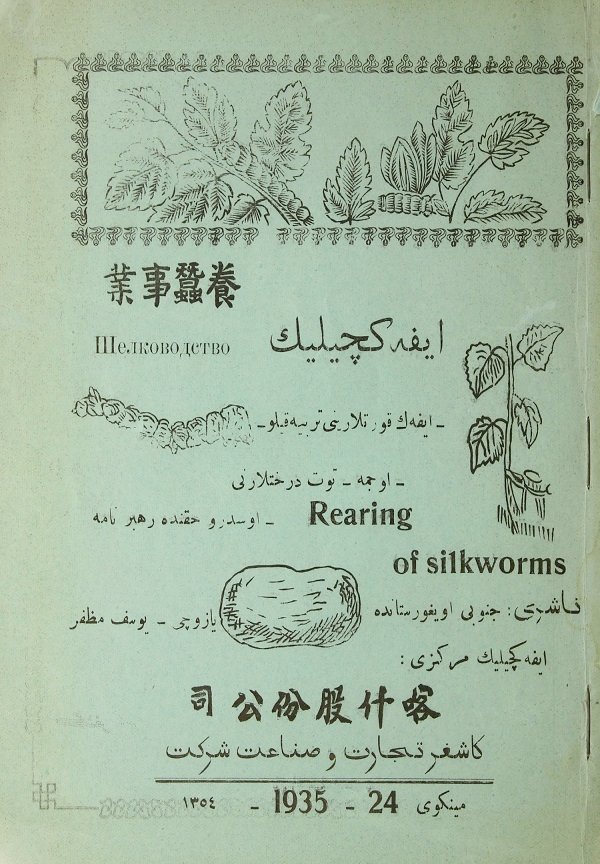 養蠶事業
ایفه کچیلیك
Шелководство
ـ ایفه‌ك قورتلارینی تربیه قیلو ـ
ـ اوجمه ـ توت درختلارنی
ـ اوسدرو حقنده رهبر نامه
Rearing
of silkworms
ناشری: جنوبی اویغورستانده
یازوچی ـ یوسف مظفر
ایفه کچیلیك مرکزی :
喀什股份公司
کاشغر تجارت و صناعت شرکت
مینکوی 24 - 1935 - ١٣٥٤